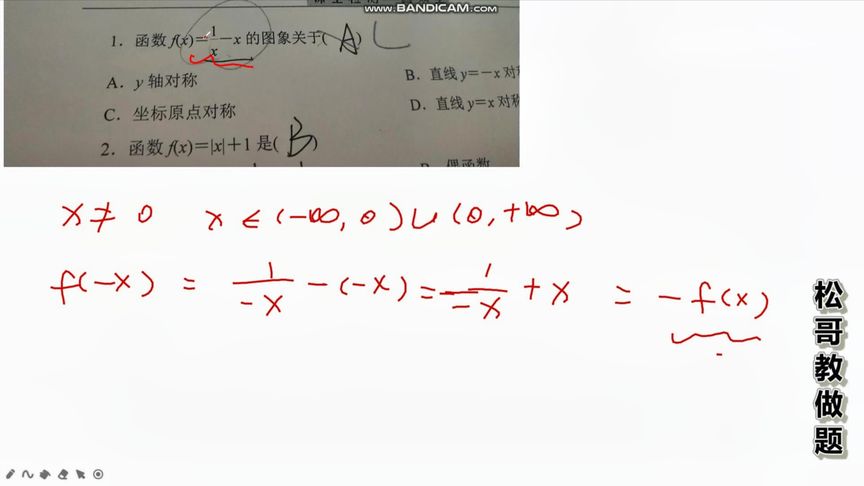 课堂检测
WWW.BANDICAM.COM
1. 函数 f(x)=1/x-x 的图象关于( A ) C
A. y 轴对称
B. 直线 y=-x 对
C. 坐标原点对称
D. 直线 y=x 对称
2. 函数 f(x)=|x|+1 是( B )
B. 偶函数
x≠0 x∈(-∞, 0)∪(0, +∞)
f(-x) = 1/-x -(-x) = -1/-x + x = -f(x)
松哥教做题